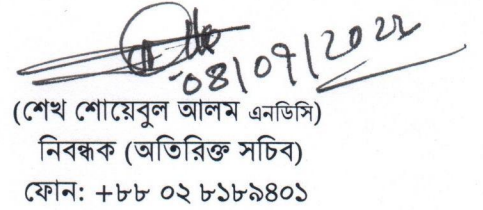 08/09/2022
(শেখ শোয়েবুল আলম এনডিসি)
নিবন্ধক (অতিরিক্ত সচিব)
ফোন: +৮৮ ০২ ৮১৮৯৪০১